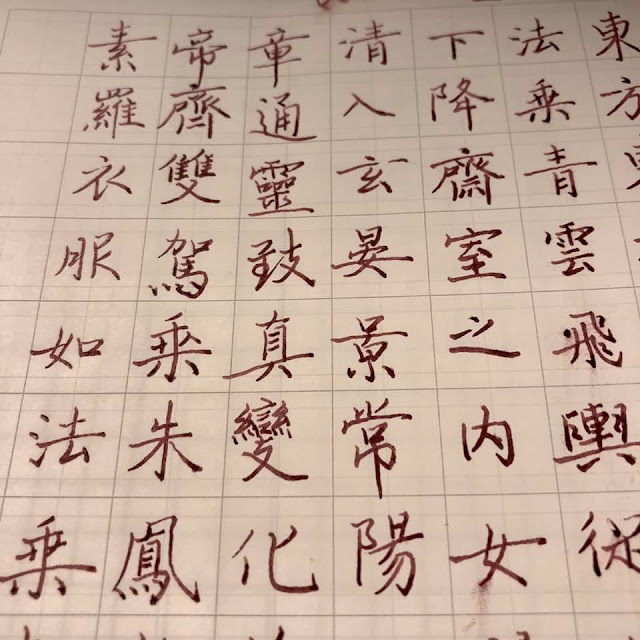 東方
法乘青雲飛輿從
下降齋室之內女
清入玄晏景常陽
章通靈致真變化
帝齊雙駕乘朱鳳
素羅衣服如法乘